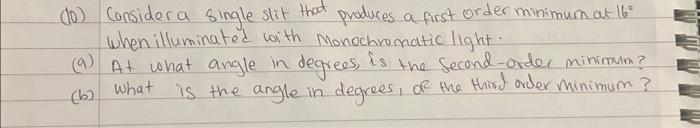 (10) Consider a single slit that produces a first order minimum at 16°
when illuminated with Monochromatic light.
(a) At what angle in degrees, is the Second-order minimum?
(b) what is the angle in degrees, of the third order minimum?